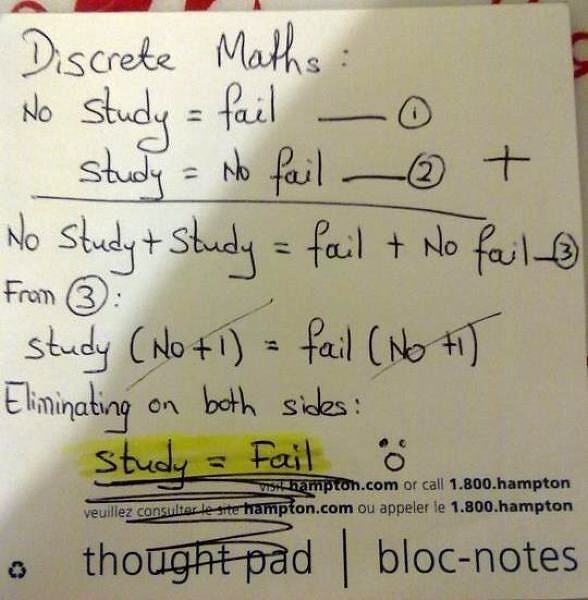 Discrete Maths :
No Study = fail —— ①
Study = No fail —— ② +
No Study + Study = fail + No fail — ③
From ③ :
Study (No + 1) = fail (No + 1)
Eliminating on both sides :
Study = Fail
visit hampton.com or call 1.800.hampton
veuillez consulter le site hampton.com ou appeler le 1.800.hampton
thought pad | bloc-notes